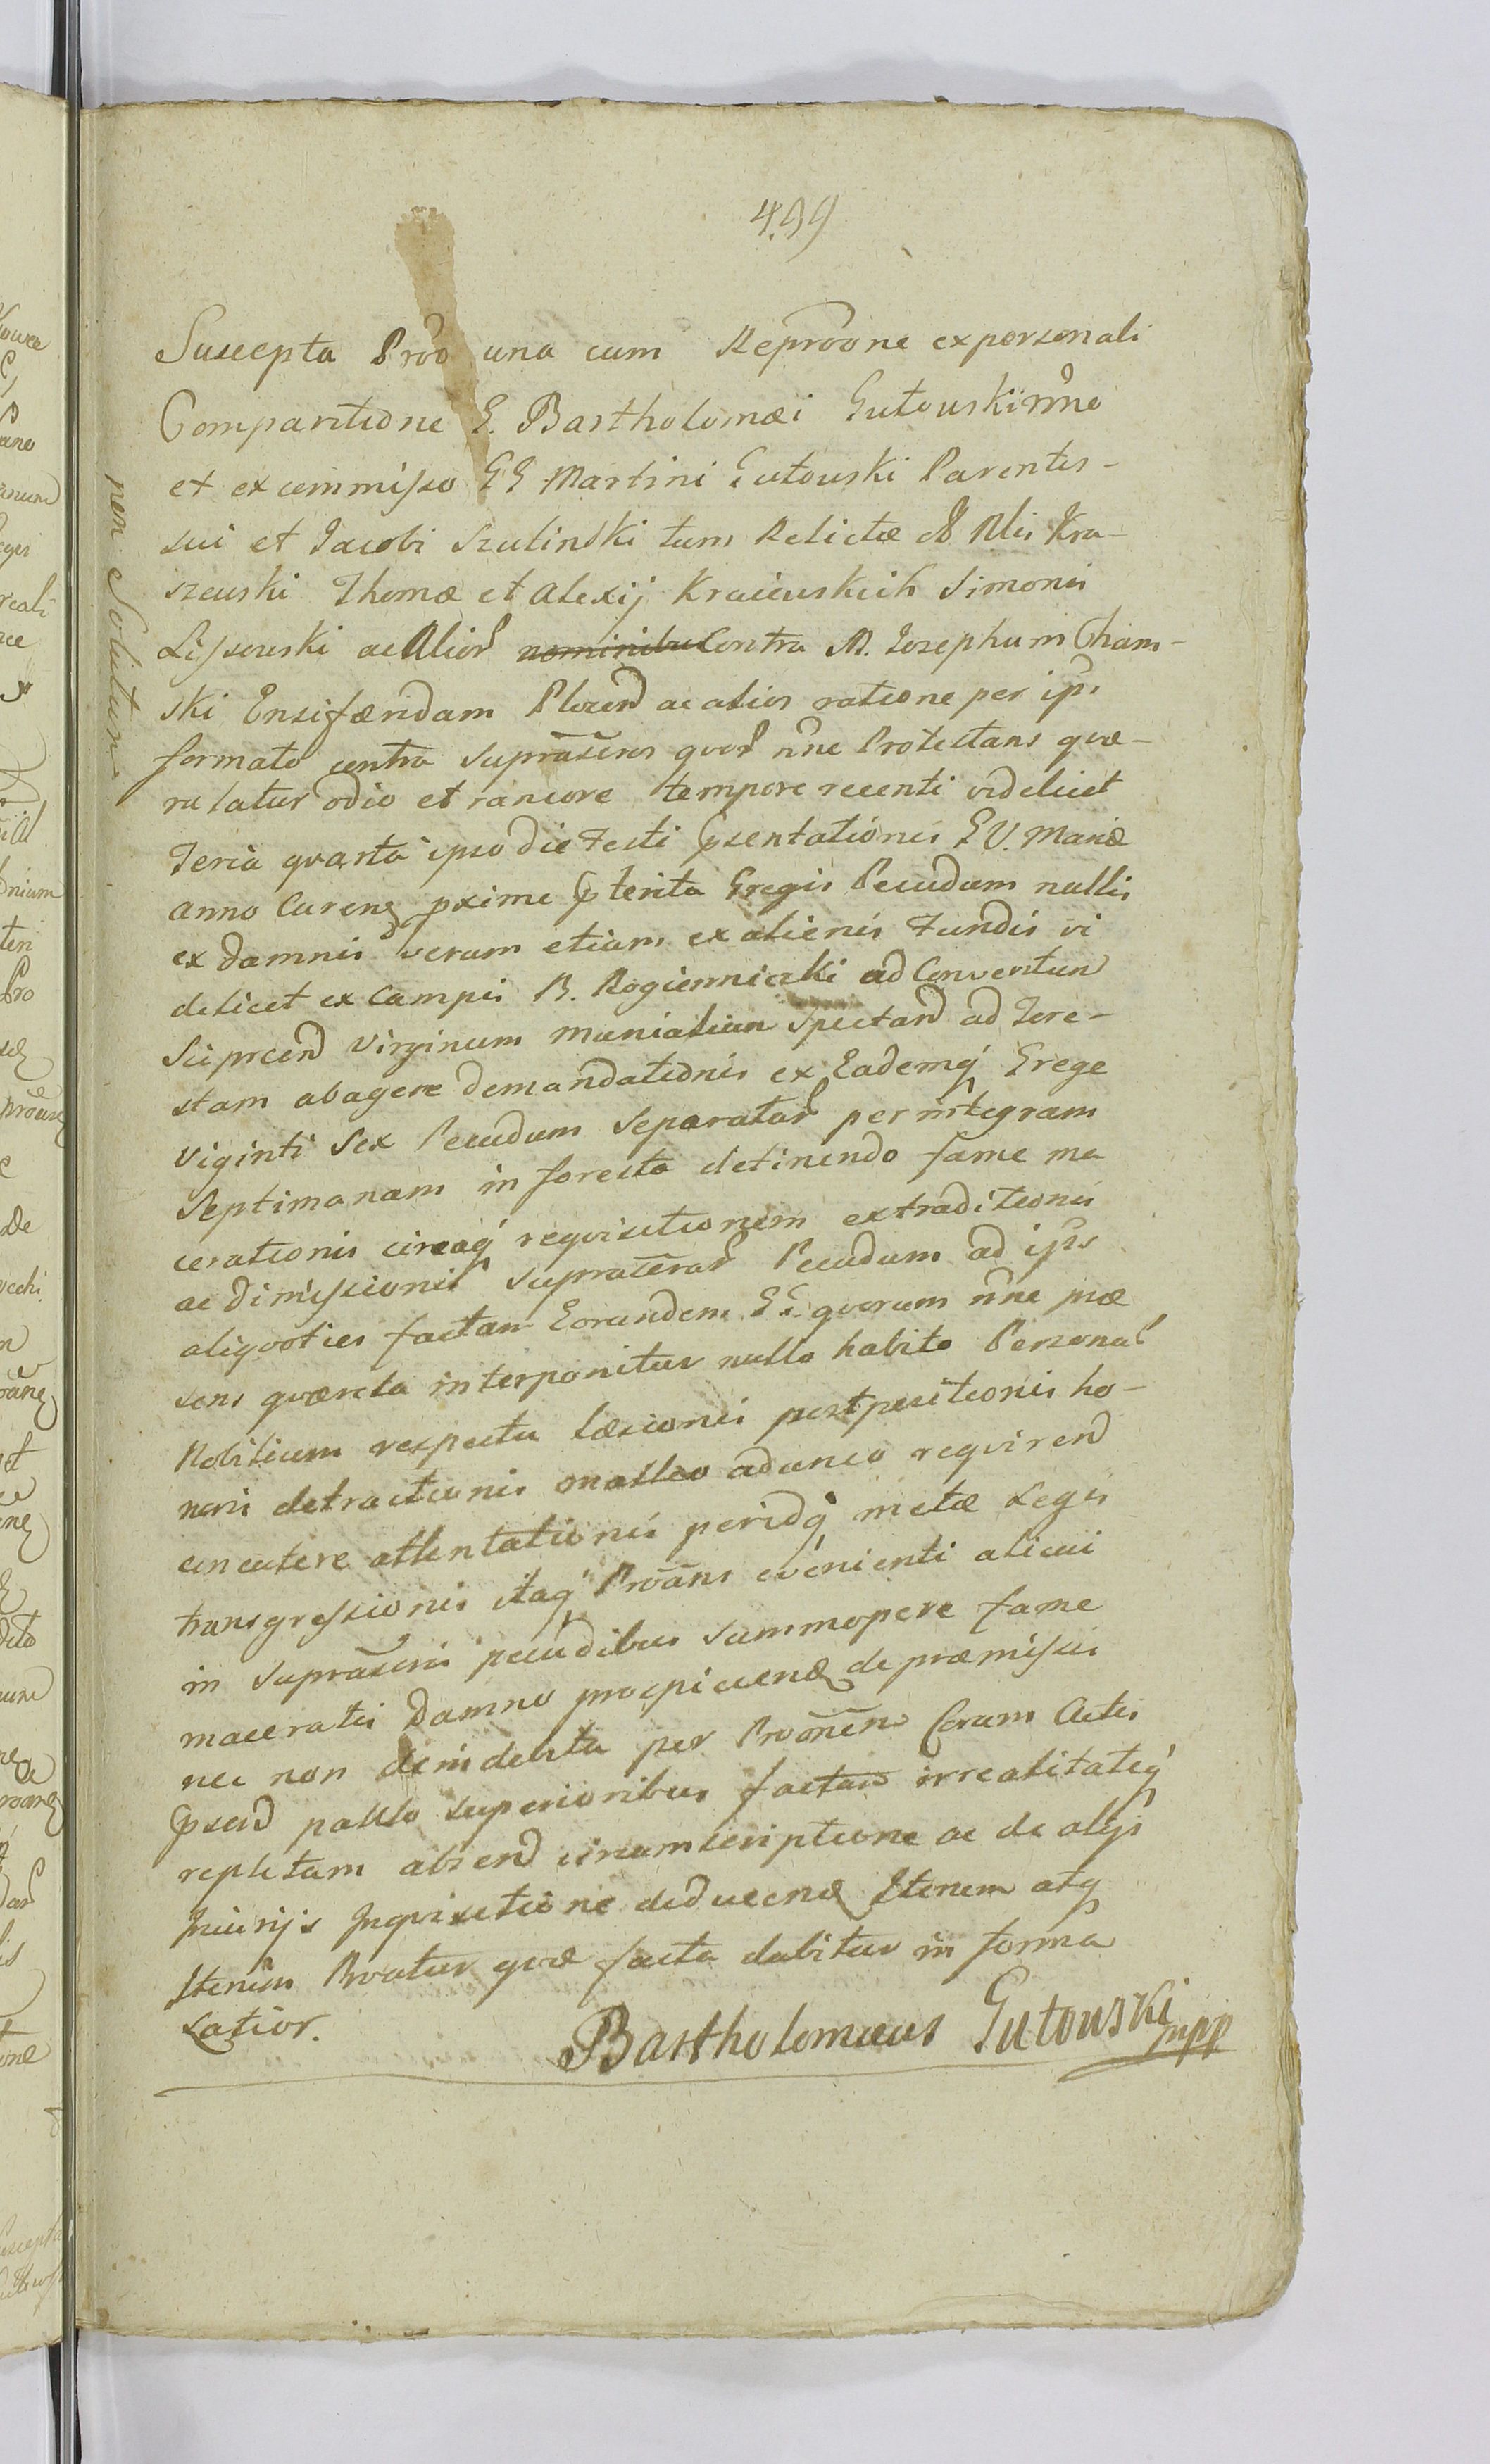 499
Suscepta Prõo una cum Reprõone ex personali
Comparitione G. Bartholomæi Gutouski nñe
et ex commisso GG Martini Gutouski Parentis
sui et Jacobi Szulinski tum Relictæ Nlis Kra-
szeuski Thomæ et Alexij Kraieuskich Simonis
Lissouski ac Alior nominibus Contra M. Josephum Cham-
ski Ensiferidam Plocen ac alios ratione per ips
formato contra supraseros quor nñe Protestans quæ-
rulatur odio et rancore tempore recenti videlicet
Feria quarta ipso die Festi Psentationis B V. Mariæ
Anno Curenq pxime Pterita Gregis Pecudum nullis
ex damnis verum etiam ex alienis Fundis vi
delicet ex Campis B. Rogienniczki ad Conventum
Sciprcen Virginum Manialium spectan ad Fore-
stam abagere demandationis ex Eademq Grege
Viginti Sex Pecudum Separatar per integram
Septimanam in foresta detinendo fame ma
cerationis circaq requisitionem extraditionis
ac dimissionis supraserar Pecudum ad ips
aliquoties factam Eorundem GG. quorum nñe præ
sens quærela interponitur nullo habito Personar
Nobilium respectu læsionis postpositionis ho-
noris detractionis malleo adunco requiren
cuncutere attentationis peridq metæ Legis
transgressionis itaq Prõans evenienti alicui
in suprascris pecudibus summopere fame
maceratis Damno prospicienq de præmissis
nec non de indebita per Proõnem Coram Actis
Psen pallo superioribus factam irrealitateq
repletam absen circumscriptione ac de alijs
Iniurijs Inquisitione deducenq Iterum atq
Iterum Prõatur quæ facta dabitur in forma
Latior.
Bartholomæus Gutouski
mpp
non Solutum